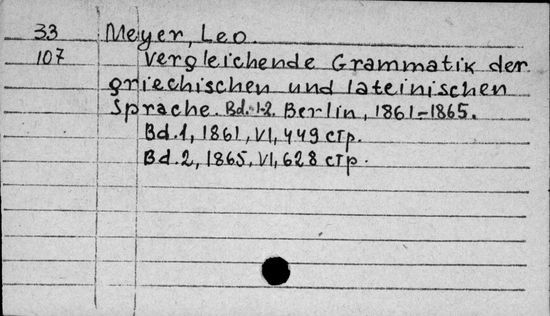 33 Meyer, Leo.
107 Vergleichende Grammatik der
griechischen und lateinischen
Sprache. Bd. 1-2. Berlin, 1861-1865.
Bd. 1, 1861, VI, 449 стр.
Bd. 2, 1865, VI, 628 стр.